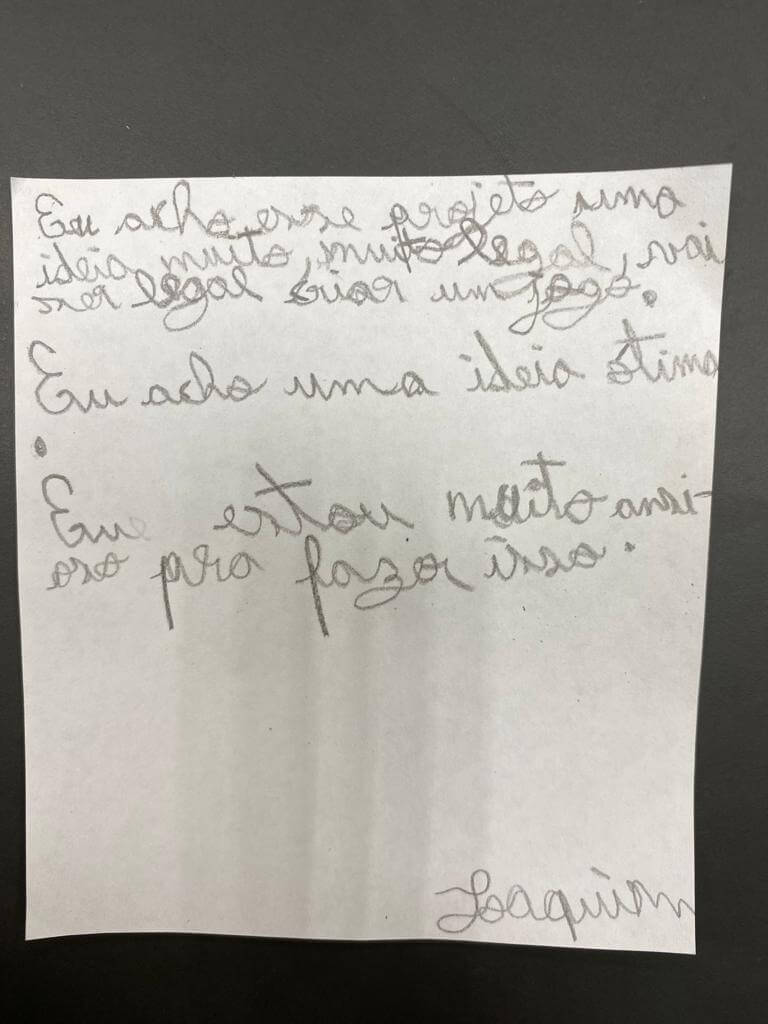 Eu acho esse projeto uma
ideia muito, muito legal, vai
ser legal criar um jogo.
Eu acho uma ideia ótima
.
Eu estou muito ansi-
oso pra fazer isso.
Joaquim